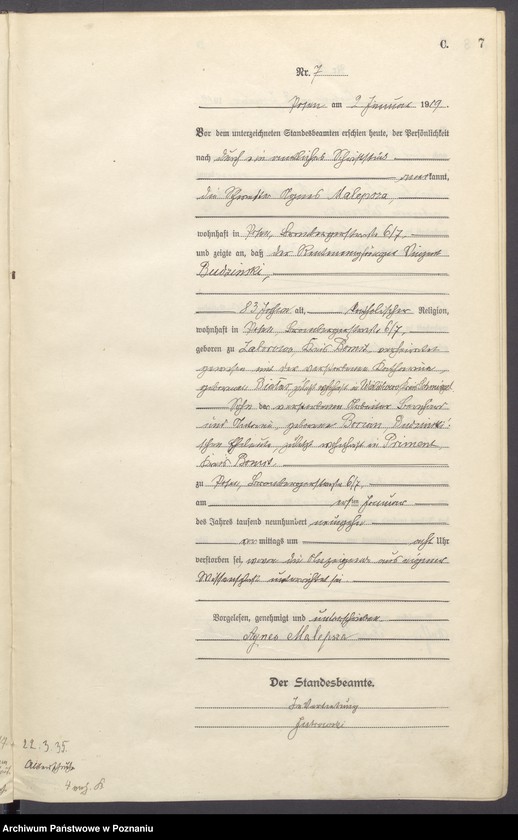 C. 7
Nr. 7
Posen am 2 Januar 1919.
Vor dem unterzeichneten Standesbeamten erschien heute, der Persönlichkeit
nach durch ein amtliches Schriftstück
anerkannt,
die Schwester Agnes Malepsza,
wohnhaft in Posen, Brombergerstraße 6/7,
und zeigte an, daß der Rentenempfänger Vinzent
Budzinski,
83 Jahre alt, katholischer Religion,
wohnhaft in Posen, Brombergerstraße 6/7,
geboren zu Kreis Bomst, verheiratet
gewesen mit der verstorbenen Katharina,
geborenen zuletzt wohnhaft in Kreis Schmiegel
Sohn der verstorbenen Arbeiter
und geborene Budzinski-
schen Eheleute, zuletzt wohnhaft in Priment,
Kreis Bomst,
zu Posen, Brombergerstraße 6/7,
am ersten Januar
des Jahres tausend neunhundert neunzehn
vor mittags um acht Uhr
verstorben sei, wovon die Anzeigende aus eigener
Wissenschaft unterrichtet sei
Vorgelesen, genehmigt und unterschrieben
Agnes Malepsza
Der Standesbeamte.
In Vertretung
22.3.35.
Archiwum Państwowe w Poznaniu